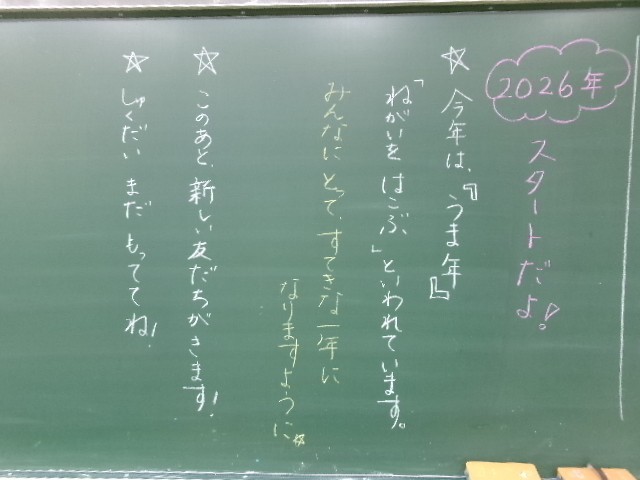 2026年
スタートだよ!
☆ 今年は、『うま年』
「ねがいを はこぶ」といわれています。
みんなに とって、すてきな一年に
なりますように☆
☆ このあと、新しい友だちがきます!
☆ しゅくだい まだ もっててね!